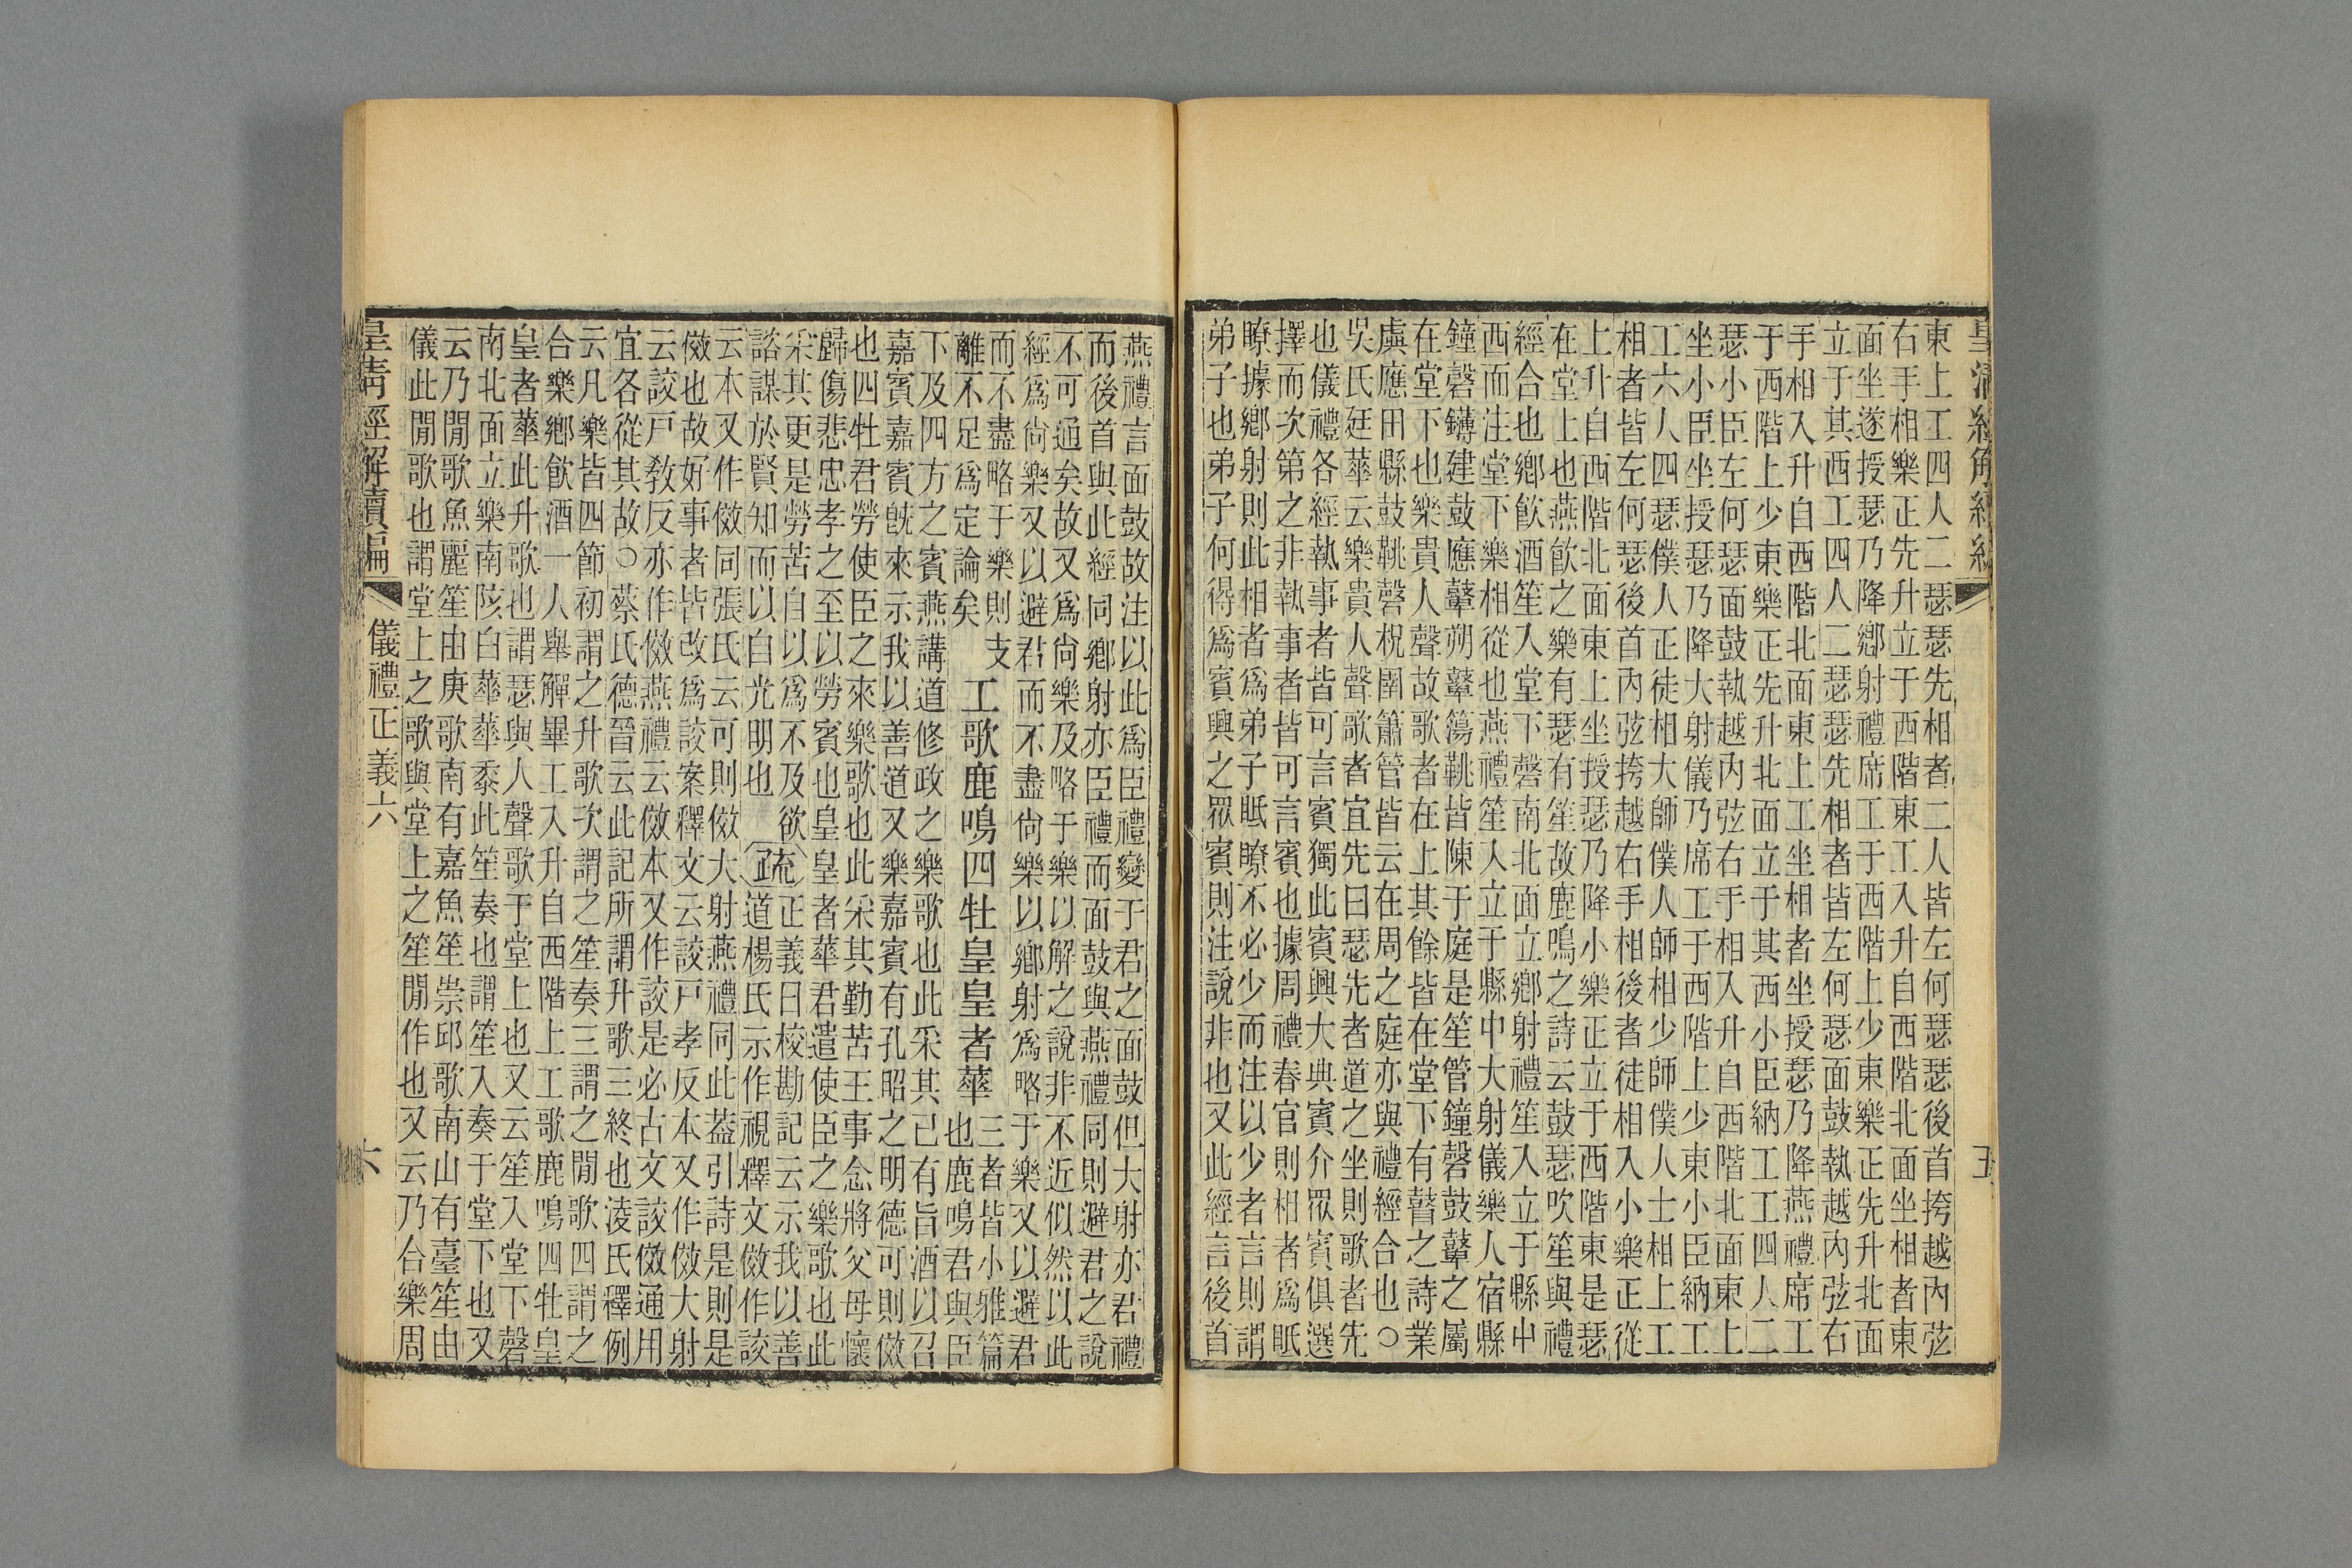 皇清經解續編
東上工四人二瑟瑟先相者二人皆左何瑟瑟後首挎越內弦
右手相樂正先升立于西階東工入升自西階北面坐相者東
面坐遂授瑟乃降鄉射禮席工于西階上少東樂正先升北面
立于其西工四人二瑟瑟先相者皆左何瑟面鼓執越內弦右
手相入升自西階北面東上工坐相者坐授瑟乃降燕禮席工
于西階上少東樂正先升北面立于其西小臣納工工四人二
瑟小臣左何瑟面鼓執越內弦右手相入升自西階北面東上
坐小臣坐授瑟乃降大射儀乃席工于西階上少東小臣納工
工六人四瑟僕人正徒相大師僕人師相少師僕人士相上工
相者皆左何瑟後首內弦挎越右手相後者徒相入小樂正從
上升自西階北面東上坐授瑟乃降小樂正立于西階東是瑟
在堂上也燕飲之樂有瑟有笙故鹿鳴之詩云鼓瑟吹笙與禮
經合也鄉飲酒笙入堂下磬南北面立鄉射禮笙入立于縣中
西而注堂下樂相從也燕禮笙入立于縣中大射儀樂人宿縣
鐘磬鑮建鼓應鼙朔鼙簜鞉皆陳于庭是笙管鐘磬鼓鼙之屬
在堂下也樂貴人聲故歌者在上其餘皆在堂下有瞽之詩業
虡應田縣鼓鞉磬柷圉簫管皆云在周之庭亦與禮經合也○
吳氏廷華云樂貴人聲歌者宜先曰瑟先者道之坐則歌者先
也儀禮各經執事者皆可言賓獨此賓興大典賓介眾賓俱選
擇而次第之非執事者皆可言賓也據周禮春官則相者爲眡
瞭據鄉射則此相者爲弟子眡瞭不必少而注以少者言則謂
弟子也弟子何得爲賓興之眾賓則注說非也又此經言後首
五
燕禮言面鼓故注以此爲臣禮變于君之面鼓但大射亦君禮
而後首與此經同鄉射亦臣禮而面鼓與燕禮同則避君之說
不可通矣故又爲尙樂及略于樂以解之說非不近似然以此
經爲尙樂又以避君而不盡尙樂以鄉射爲略于樂又以避君
而不盡略于樂則支
離不足爲定論矣
工歌鹿鳴四牡皇皇者華
三者皆小雅篇
也鹿鳴君與臣
下及四方之賓燕講道修政之樂歌也此采其已有旨酒以召
嘉賓嘉賓旣來示我以善道又樂嘉賓有孔昭之明德可則傚
也四牡君勞使臣之來樂歌也此采其勤苦王事念將父母懷
歸傷悲忠孝之至以勞賓也皇皇者華君遣使臣之樂歌也此
采其更是勞苦自以爲不及欲
諮謀於賢知而以自光明也
疏
正義曰校勘記云示我以善
道楊氏示作視釋文傚作詨
云本又作傚同張氏云可則傚大射燕禮同此蓋引詩是則是
傚也故好事者皆改爲詨案釋文云詨戸孝反本又作傚大射
云詨戸敎反亦作傚燕禮云傚本又作詨是必古文詨傚通用
宜各從其故○蔡氏德晉云此記所謂升歌三終也淩氏釋例
云凡樂皆四節初謂之升歌次謂之笙奏三謂之閒歌四謂之
合樂鄉飮酒一人舉觶畢工入升自西階上工歌鹿鳴四牡皇
皇者華此升歌也謂瑟與人聲歌于堂上也又云笙入堂下磬
南北面立樂南陔白華華黍此笙奏也謂笙入奏于堂下也又
云乃閒歌魚麗笙由庚歌南有嘉魚笙崇邱歌南山有臺笙由
儀此閒歌也謂堂上之歌與堂上之笙閒作也又云乃合樂周
皇淸經解續編
儀禮正義六
六